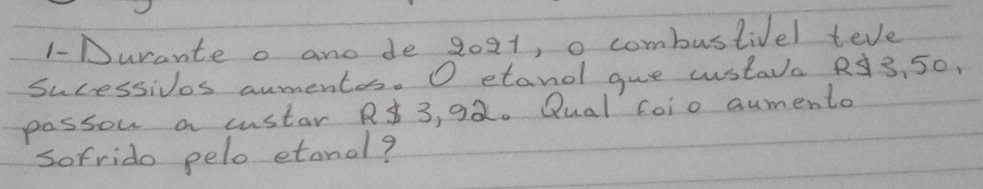 1- Durante o ano de 2021, o combustível teve
sucessivos aumentos. O etanol que custava R$ 3,50,
passou a custar R$ 3,92. Qual foi o aumento
sofrido pelo etanol?